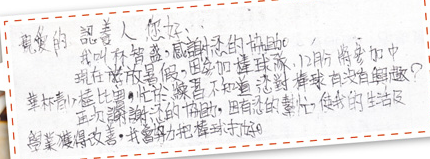 親愛的 認養人 您好：
我叫林智益，感謝您的協助。
現在放暑假，因參加棒球隊，12月將參加中
華林青少棒比賽，忙於練習不知道您對棒球有沒有興趣？
再次謝謝您的協助，因有您的幫忙使我的生活及
營業獲得改善，我會努力把棒球打好。